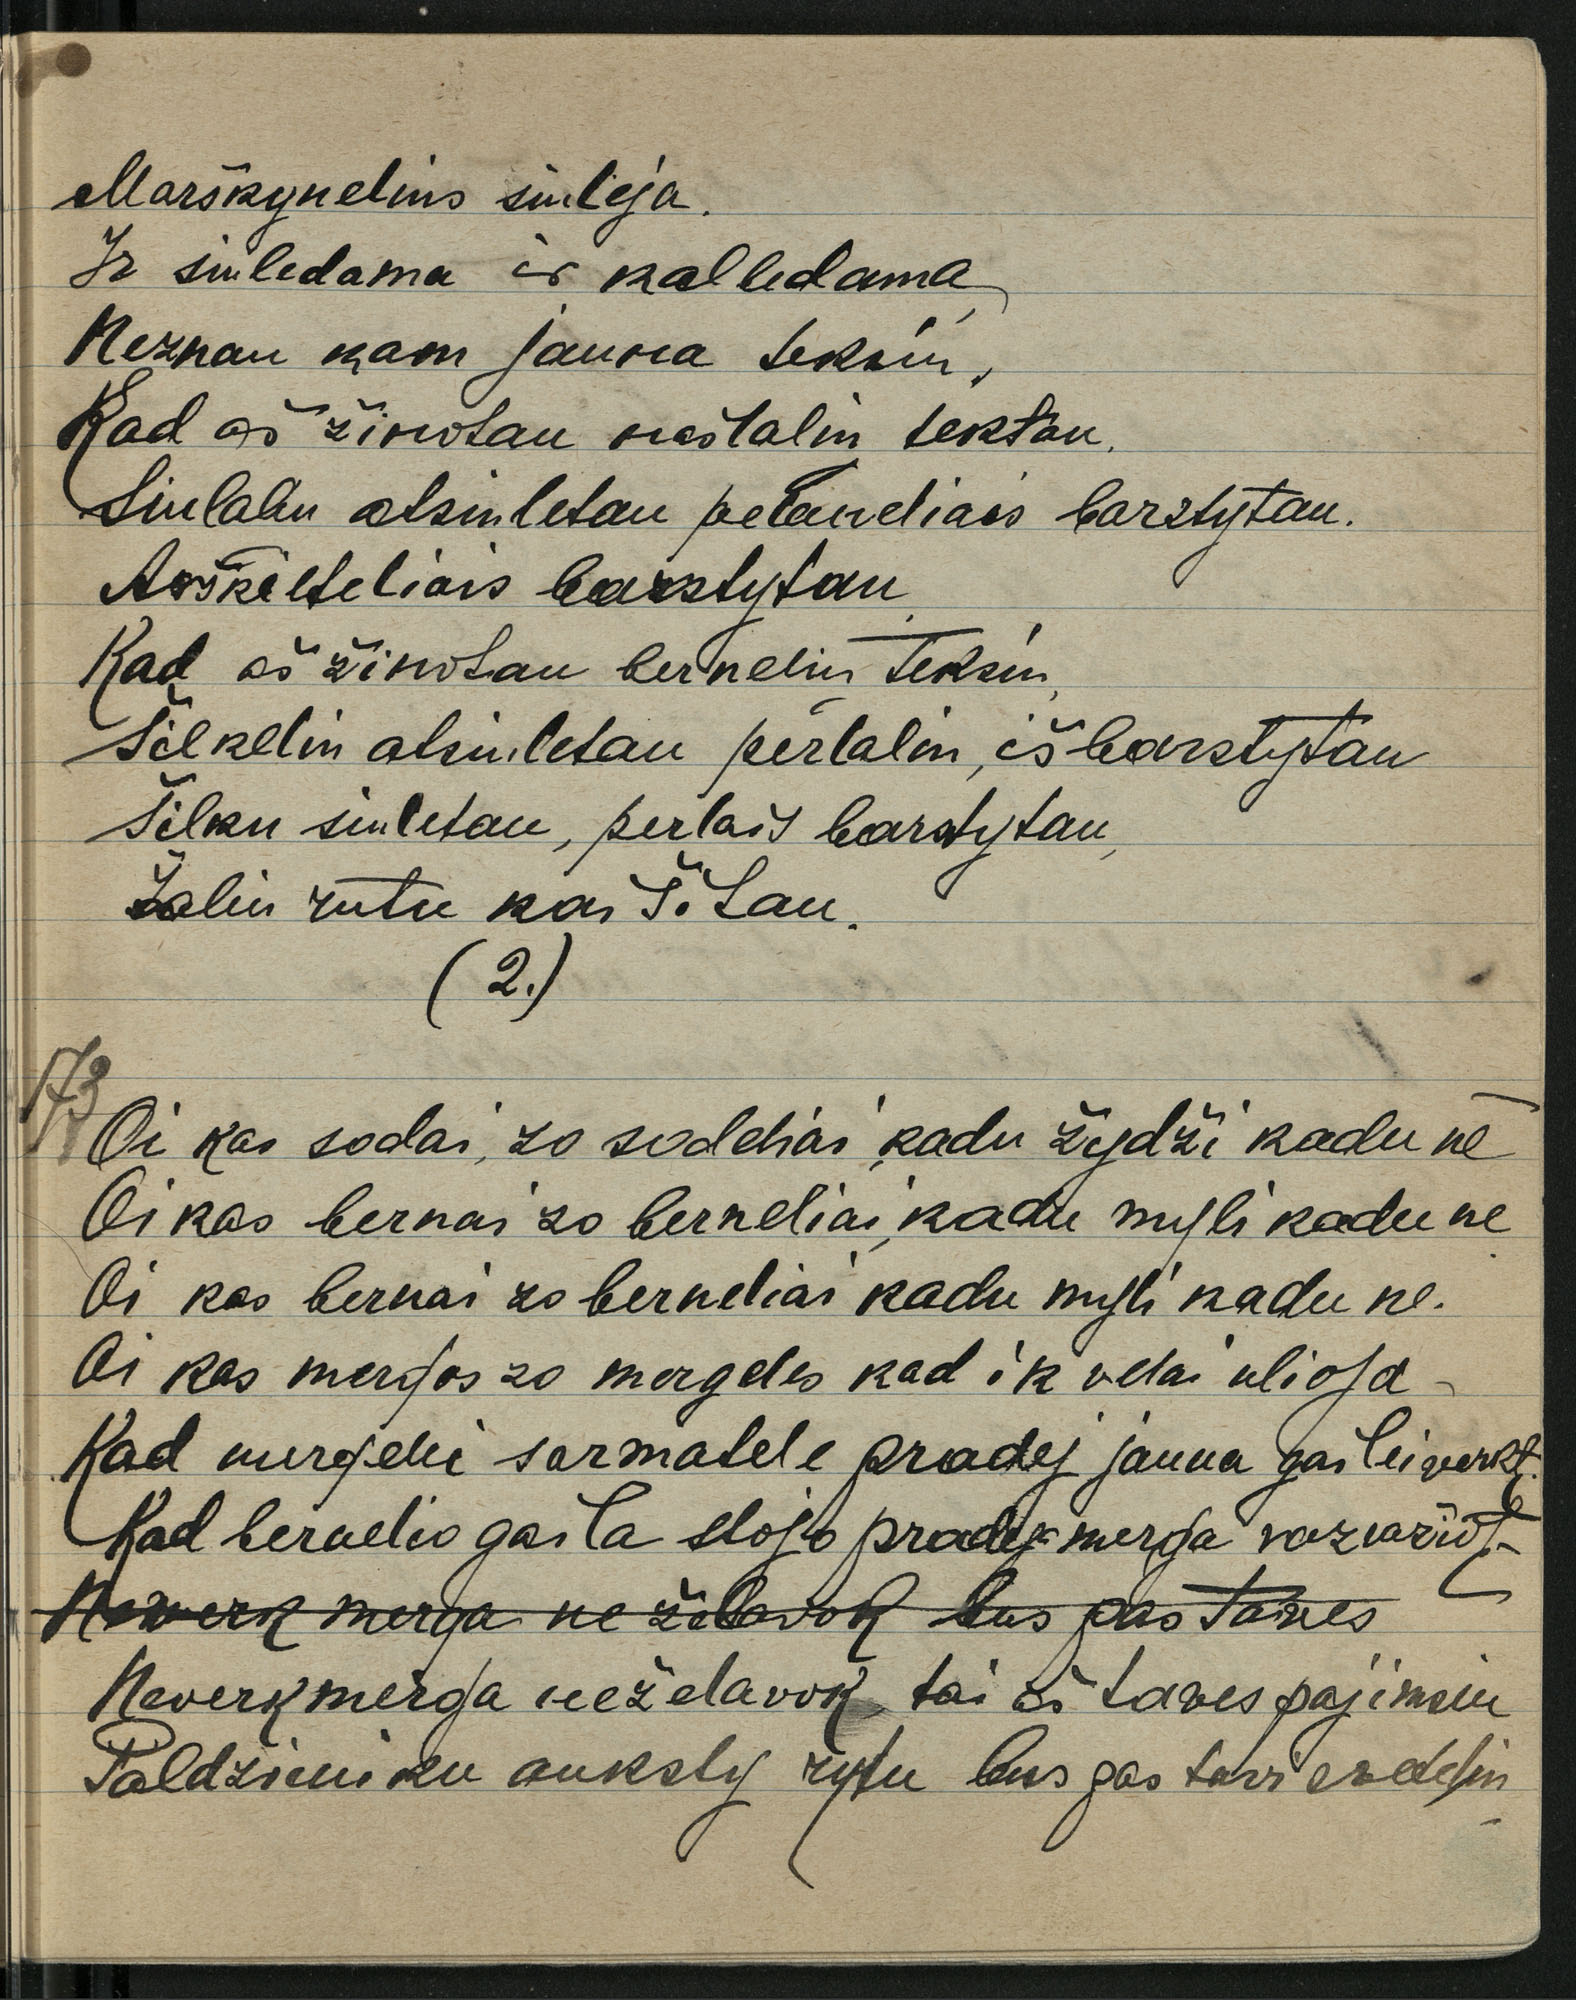 Marškynelius siulėja.
Ir siuledama ir kalbedama,
Neznau kam jauna teksiu,
Kad aš žinotau našlaliu tektau,
Siulaliu atsiuletau pelaneliais barstytau.
Anškilteliais barstytau
Kad aš žinotau berneliu teksiu,
Šilkeliu atsiuletau perlaliu, išbarstytau
Šilku siuletau, perlais barstytau,
Žaliu rutu kaišitau.
(2.)
173
Oi kas sodai, zo sodeliai, kadu žydži kadu ne
Oi kas bernai zo berneliai, kadu myli kadu ne
Oi kas bernai zo berneliai kadu myli kadu ne.
Oi kas mergos zo mergeles kad ik velai ulioja
Kad mergelei sarmatele pradej jauna gailei verkt.
Kad bernelio gaila stojo pradej merga
Neverk merga ne želavok bus gas taves
Neverk merga neželavok tai aš taves pajimsiu
Paldzieniku anksty rytu bus gas tavi